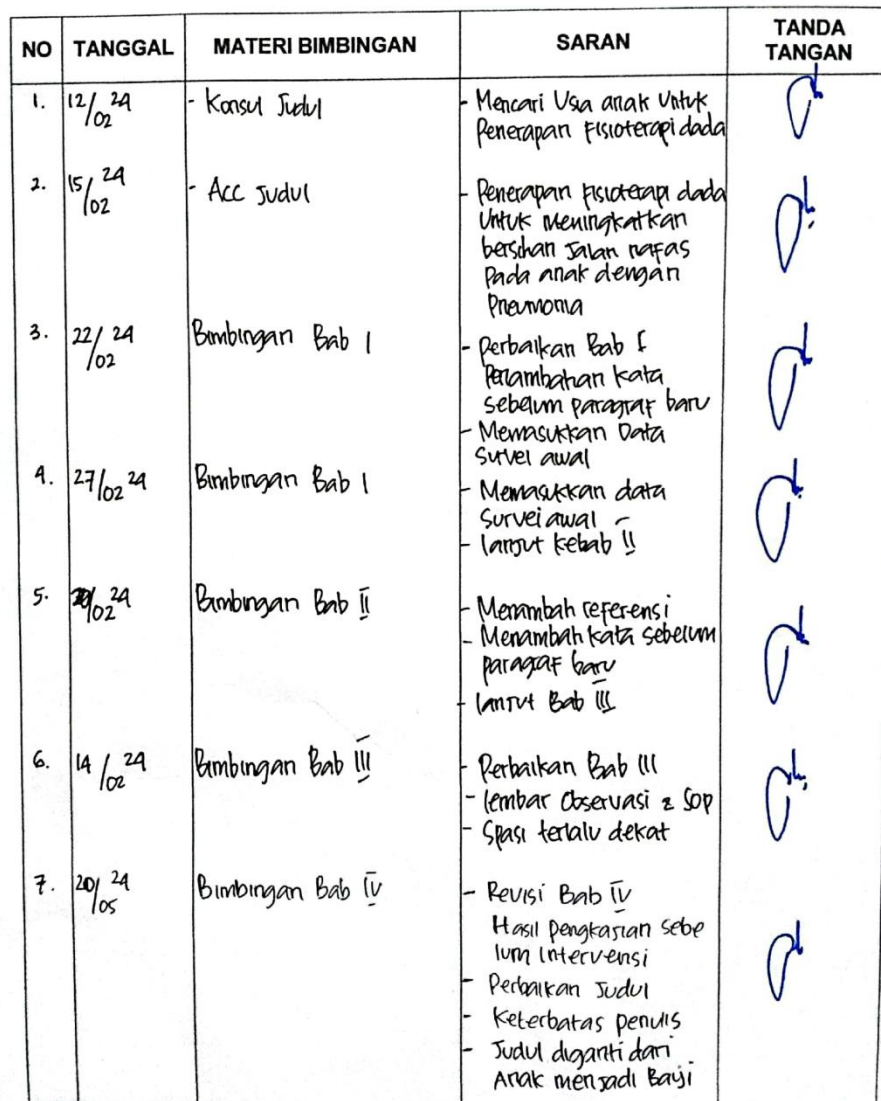 NO TANGGAL MATERI BIMBINGAN SARAN TANDA TANGAN
1. 12/02 24 - Konsul Judul - Mencari Usia anak Untuk
Penerapan Fisioterapi dada
2. 15/02 24 - Acc Judul - Penerapan Fisioterapi dada
Untuk Meningkatkan
bersihan Jalan nafas
Pada anak dengan
Pneumonia
3. 22/02 24 Bimbingan Bab I - Perbaikan Bab I
Penambahan kata
sebelum paragraf baru
- Memasukkan Data
Survei awal
4. 27/02 24 Bimbingan Bab I - Memasukkan data
Survei awal
- lanjut kebab II
5. /02 24 Bimbingan Bab II - Menambah referensi
- Menambah kata sebelum
paragraf baru
- lanjut Bab III
6. 14/02 24 Bimbingan Bab III - Perbaikan Bab III
- lembar Observasi & SOP
- Spasi terlalu dekat
7. 20/05 24 Bimbingan Bab IV - Revisi Bab IV
Hasil pengkajian sebe
lum intervensi
- Perbaikan Judul
- Keterbatas penulis
- Judul diganti dari
Anak menjadi Bayi